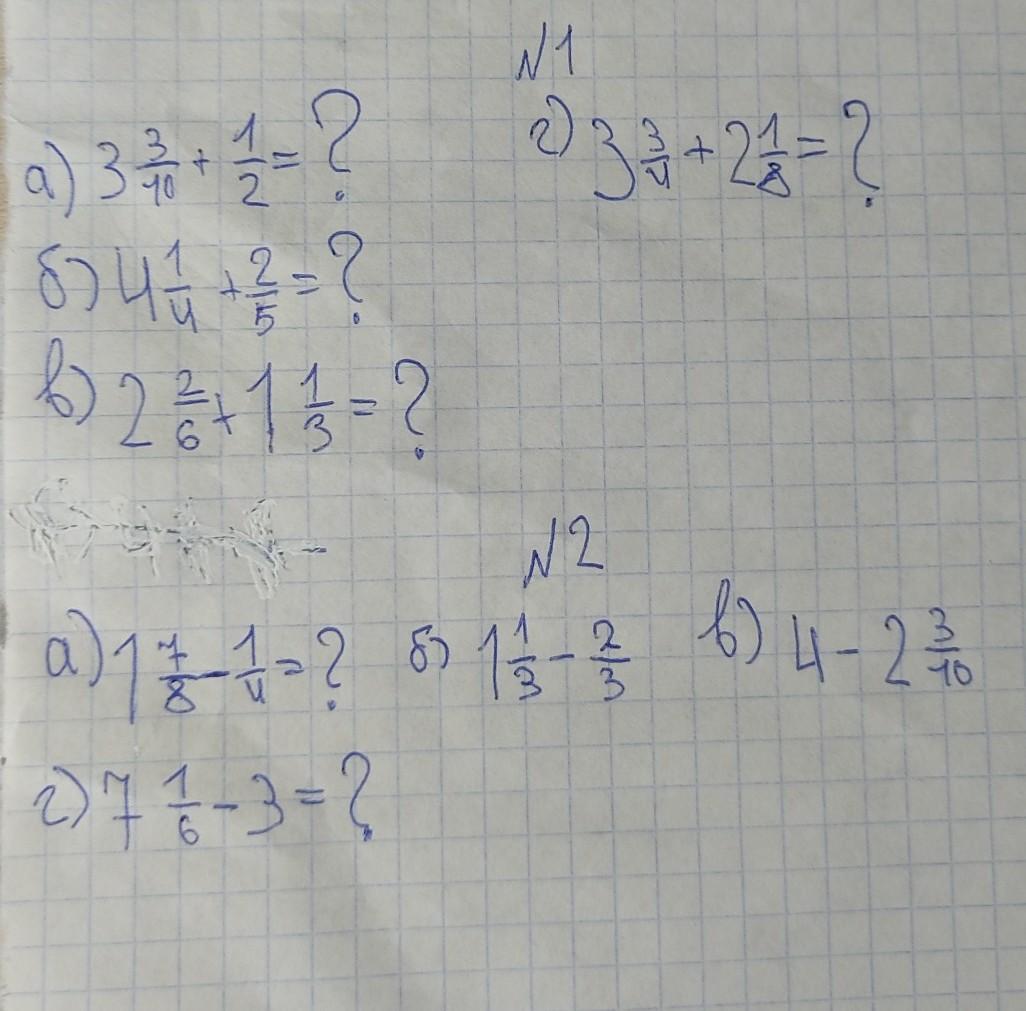 №1
а) 3 3/10 + 1/2 = ? г) 3 3/4 + 2 1/8 = ?
б) 4 1/4 + 2/5 = ?
в) 2 2/6 + 1 1/3 = ?
№2
а) 1 7/8 - 1/4 = ? б) 1 1/3 - 2/3 в) 4 - 2 3/10
г) 7 1/6 - 3 = ?